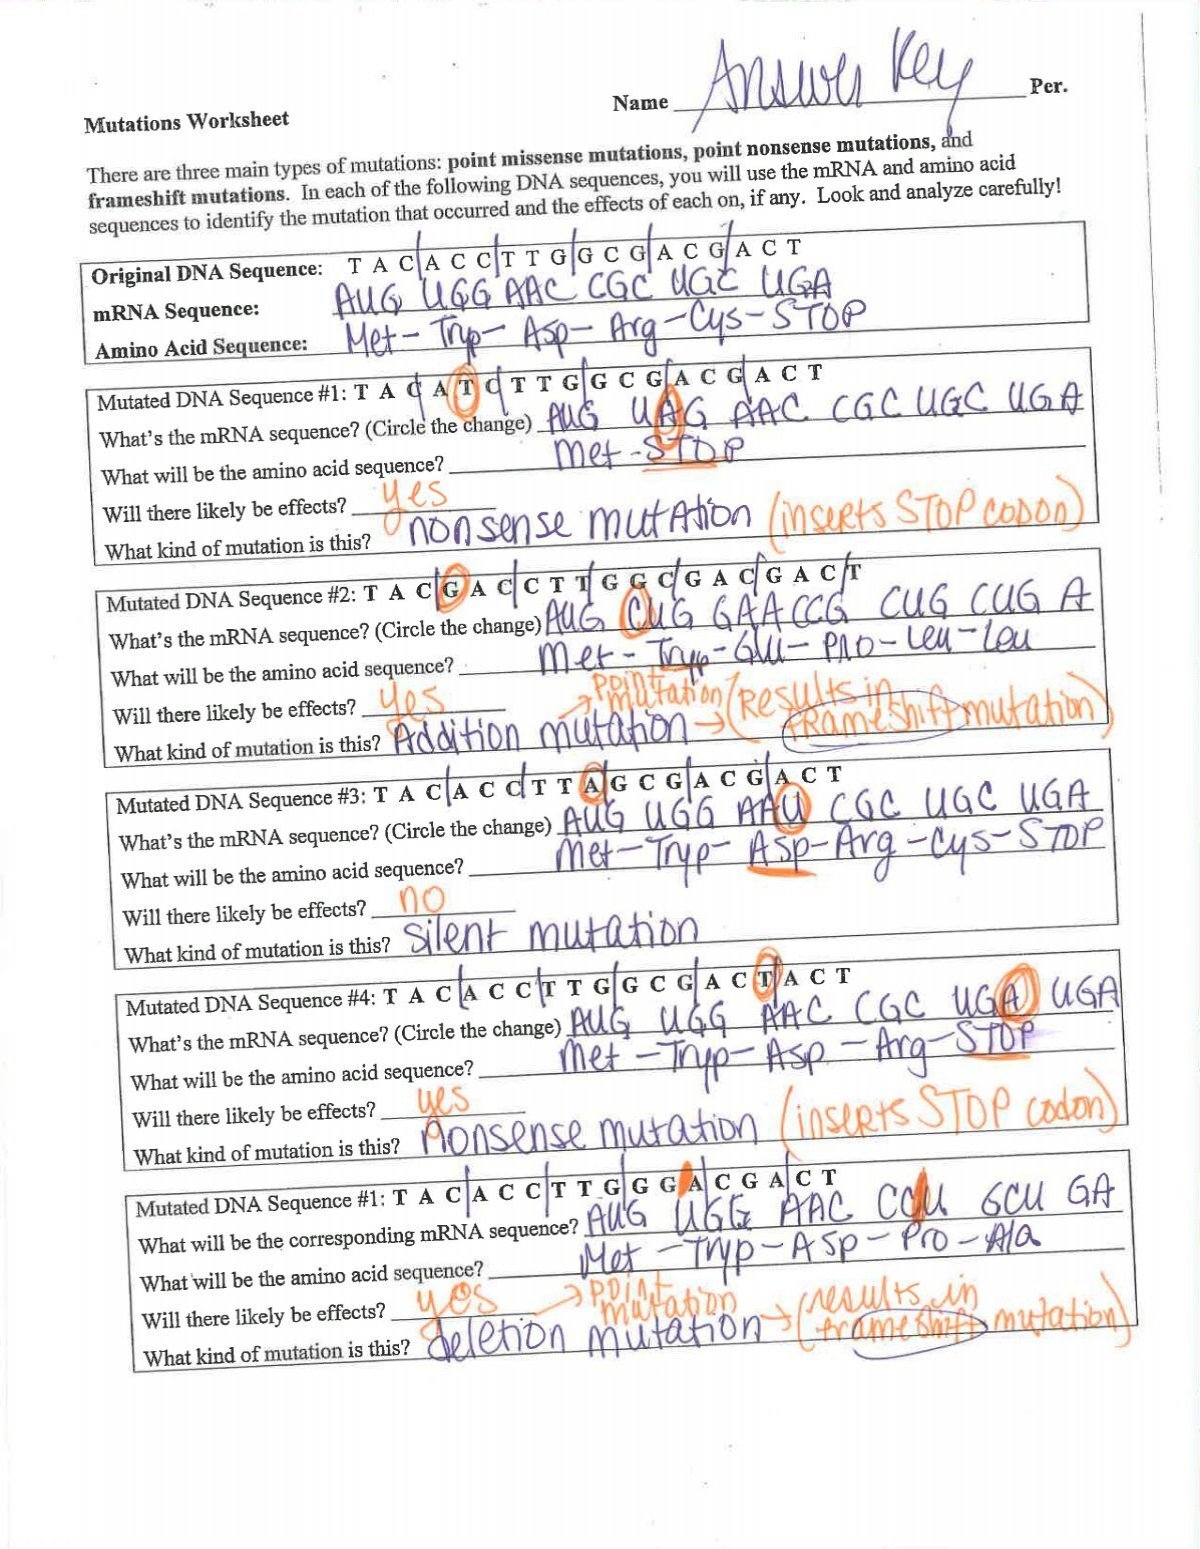 Name Answer Key Per.
Mutations Worksheet
There are three main types of mutations: point missense mutations, point nonsense mutations, and
frameshift mutations. In each of the following DNA sequences, you will use the mRNA and amino acid
sequences to identify the mutation that occurred and the effects of each on, if any. Look and analyze carefully!
Original DNA Sequence: T A C A C C T T G G C G A C G A C T
mRNA Sequence: AUG UGG AAC CGC UGC UGA
Amino Acid Sequence: Met - Tryp - Asp - Arg - Cys - STOP
Mutated DNA Sequence #1: T A C A T C T T G G C G A C G A C T
What's the mRNA sequence? (Circle the change) AUG UAG AAC CGC UGC UGA
What will be the amino acid sequence? Met - STOP
Will there likely be effects? yes
What kind of mutation is this? nonsense mutation (inserts STOP codon)
Mutated DNA Sequence #2: T A C G A C C T T G G C G A C G A C T
What's the mRNA sequence? (Circle the change) AUG CUG GAA CCG CUG CUG A
What will be the amino acid sequence? Met - Tryp - Glu - Pro - Leu - Leu
Will there likely be effects? yes → point mutation
What kind of mutation is this? Addition mutation → (Results in frameshift mutation)
Mutated DNA Sequence #3: T A C A C C T T A G C G A C G A C T
What's the mRNA sequence? (Circle the change) AUG UGG AAU CGC UGC UGA
What will be the amino acid sequence? Met - Tryp - Asp - Arg - Cys - STOP
Will there likely be effects? no
What kind of mutation is this? silent mutation
Mutated DNA Sequence #4: T A C A C C T T G G C G A C T A C T
What's the mRNA sequence? (Circle the change) AUG UGG AAC CGC UGA UGA
What will be the amino acid sequence? Met - Tryp - Asp - Arg - STOP
Will there likely be effects? yes
What kind of mutation is this? nonsense mutation (inserts STOP codon)
Mutated DNA Sequence #1: T A C A C C T T G G G A C G A C T
What will be the corresponding mRNA sequence? AUG UGG AAC CCU GCU GA
What will be the amino acid sequence? Met - Tryp - Asp - Pro - Ala
Will there likely be effects? yes → point mutation
What kind of mutation is this? deletion mutation → (results in frameshift mutation)